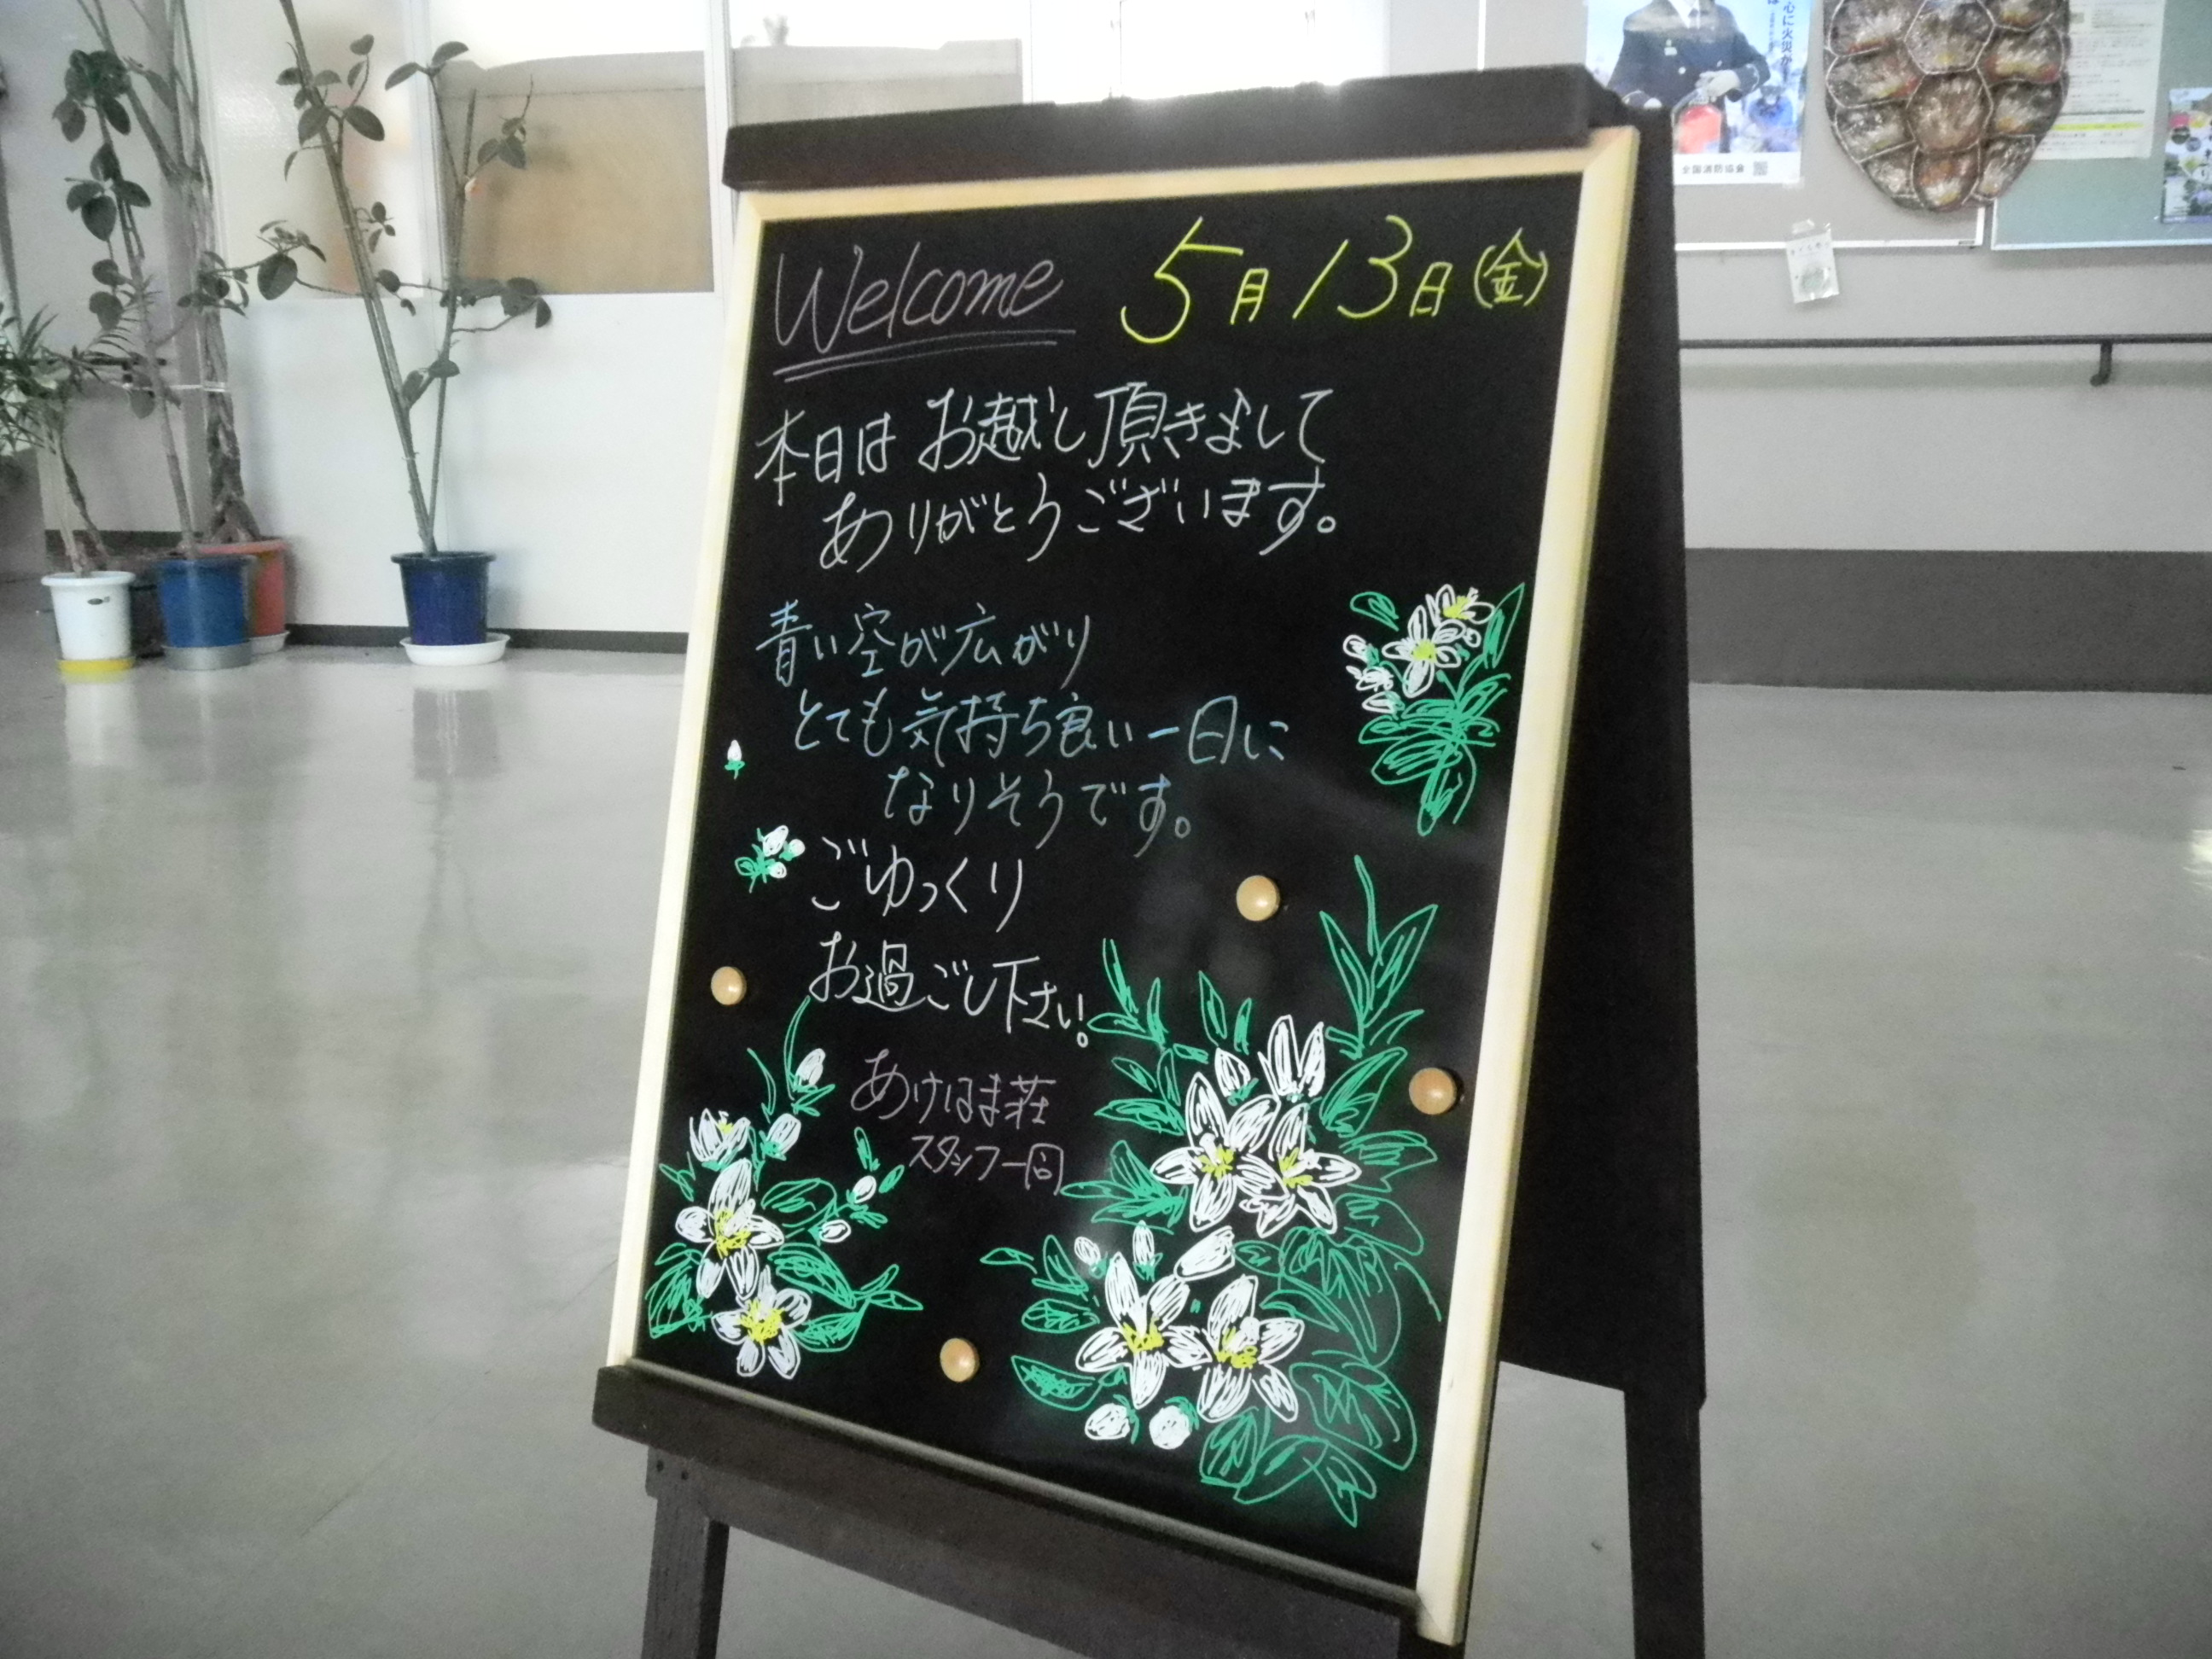 Welcome 5月13日(金)
本日はお越し頂きまして
ありがとうございます。
青い空が広がり
とても気持ち良い一日に
なりそうです。
ごゆっくり
お過ごし下さい!
あけはま荘
スタッフ一同
心に火災が
全国消防協会